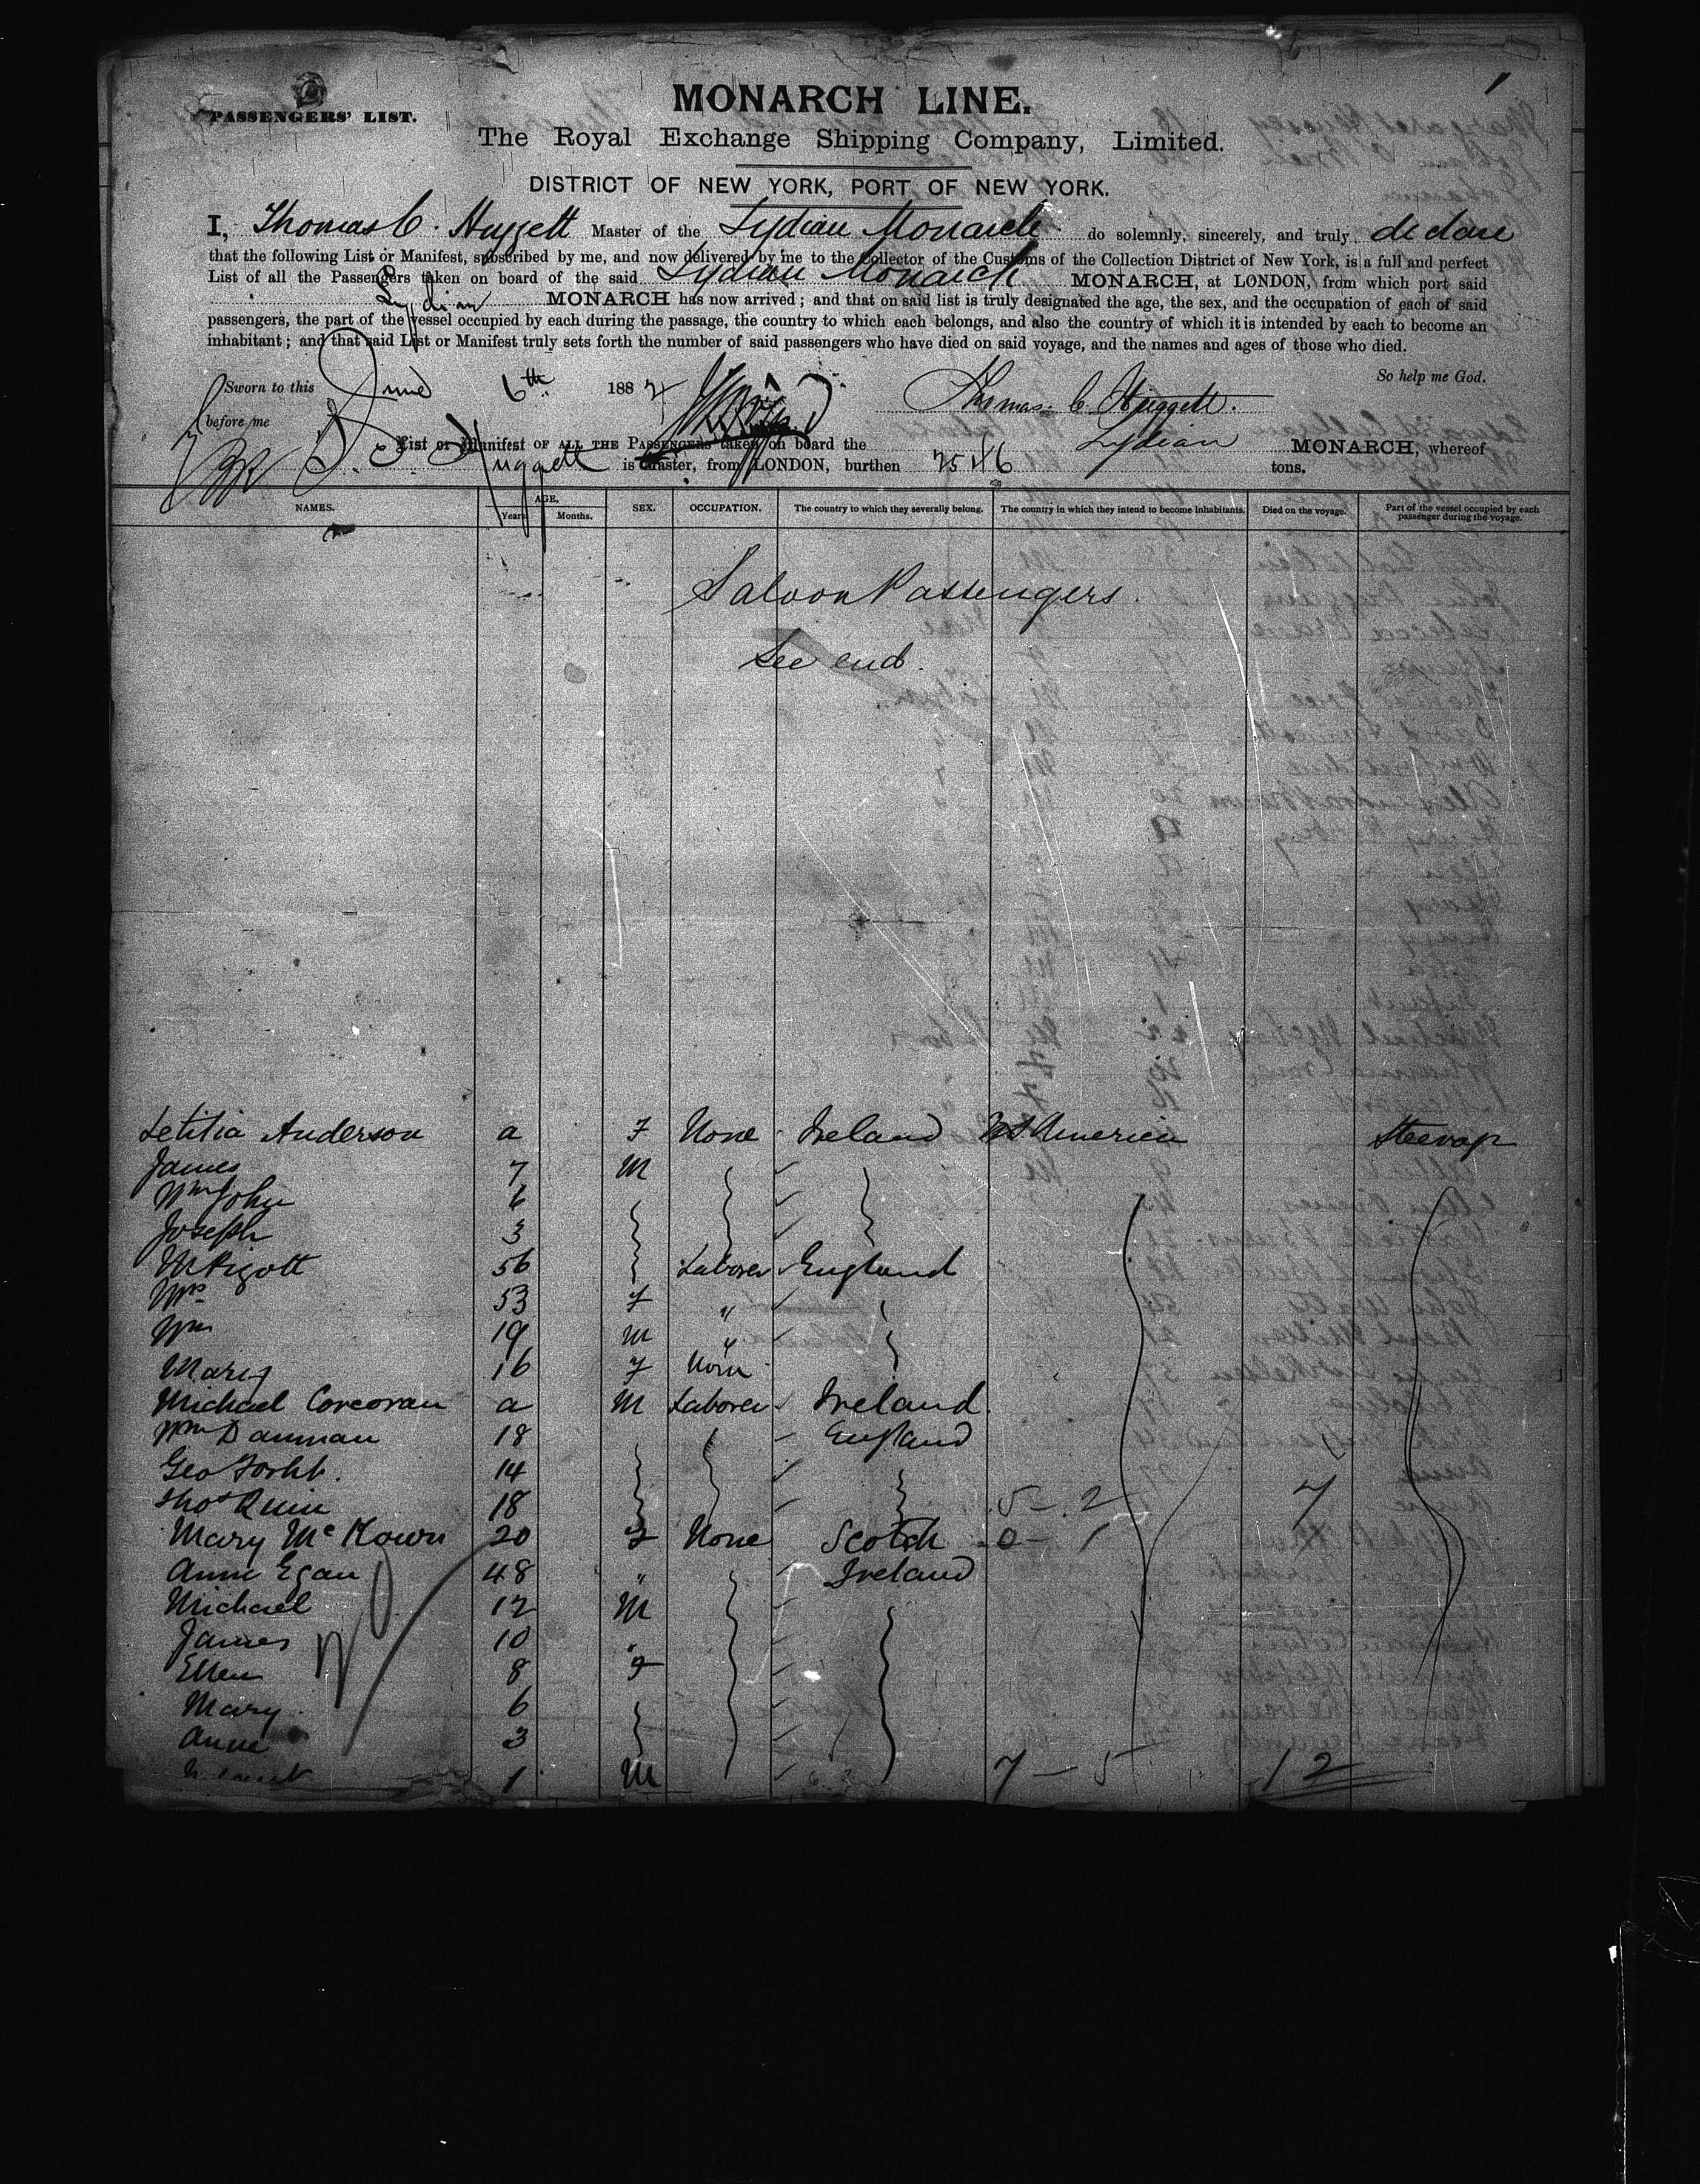 1
PASSENGERS' LIST.
MONARCH LINE.
The Royal Exchange Shipping Company, Limited.
DISTRICT OF NEW YORK, PORT OF NEW YORK.
I, Thomas C. Huggett Master of the Lydian Monarch do solemnly, sincerely, and truly declare
that the following List or Manifest, subscribed by me, and now delivered by me to the Collector of the Customs of the Collection District of New York, is a full and perfect
List of all the Passengers taken on board of the said Lydian Monarch MONARCH, at LONDON, from which port said
Lydian MONARCH has now arrived; and that on said list is truly designated the age, the sex, and the occupation of each of said
passengers, the part of the vessel occupied by each during the passage, the country to which each belongs, and also the country of which it is intended by each to become an
inhabitant; and that said List or Manifest truly sets forth the number of said passengers who have died on said voyage, and the names and ages of those who died.
So help me God.
Sworn to this June 6th 1882
Thomas C. Huggett.
before me
List or Manifest OF ALL THE PASSENGERS taken on board the Lydian MONARCH, whereof
Huggett is Master, from LONDON, burthen 2546 tons.
NAMES. AGE. Years Months. SEX. OCCUPATION. The country to which they severally belong. The country in which they intend to become inhabitants. Died on the voyage. Part of the vessel occupied by each passenger during the voyage.
Saloon Passengers.
See end.
Letitia Anderson a F None Ireland America Steerage
James 7 M
Wm John 6
Joseph 3
M Pigott 56 Laborer England
Mrs 53 F "
Wm 19 M "
Mary 16 F None
Michael Corcoran a M Laborer Ireland
Wm Danman 18 England
Geo 14
Thos Quin 18 5 - 2 7
Mary McKown 20 F None Scotch 0 - 1
Anne Egan 48 " Ireland
Michael 12 M
James 10 "
Ellen 8 F
Mary 6
Anne 3
Infant 1 M 7 - 5 12